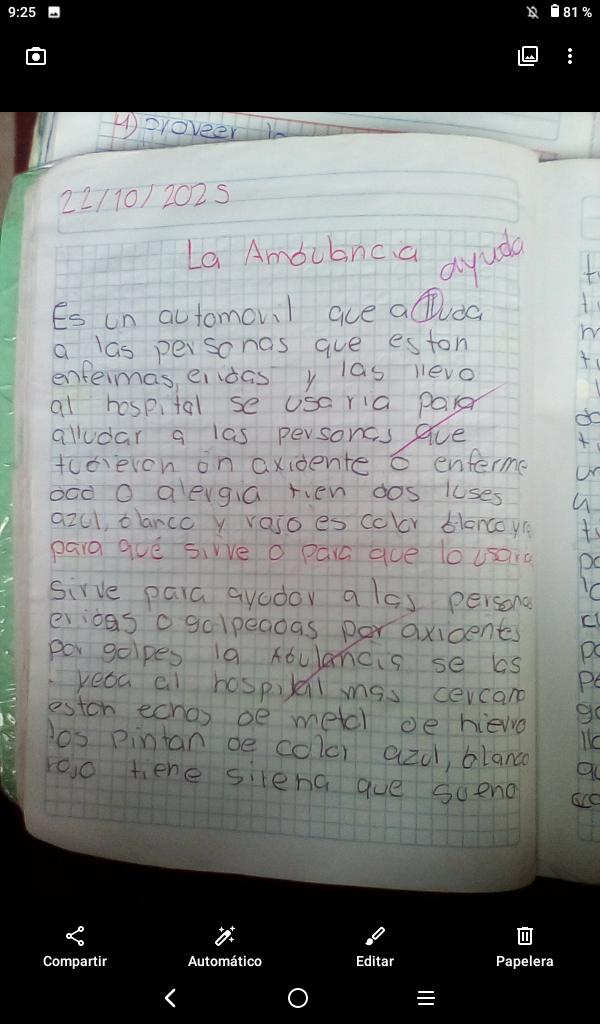 9:25
81 %
4) proveer
22/10/2025
La Ambulancia
ayuda
Es un automovil que alluda
a las personas que estan
enfermas, eridas y las lleva
al hospital se usaria para
alludar a las personas que
tubieron un axidente o enferme
dad o alergia tien dos luses
azul, blanco y rojo es color blanco y ro
para qué sirve o para que lo usara
Sirve para ayudar a las persona
eridas o golpeadas por axidentes
por golpes la abulancia se las
yeba al hospital mas cercano
estan echos de metal de hierro
los pintan de color azul, blanco
rojo tiene sirena que suena
Compartir
Automático
Editar
Papelera